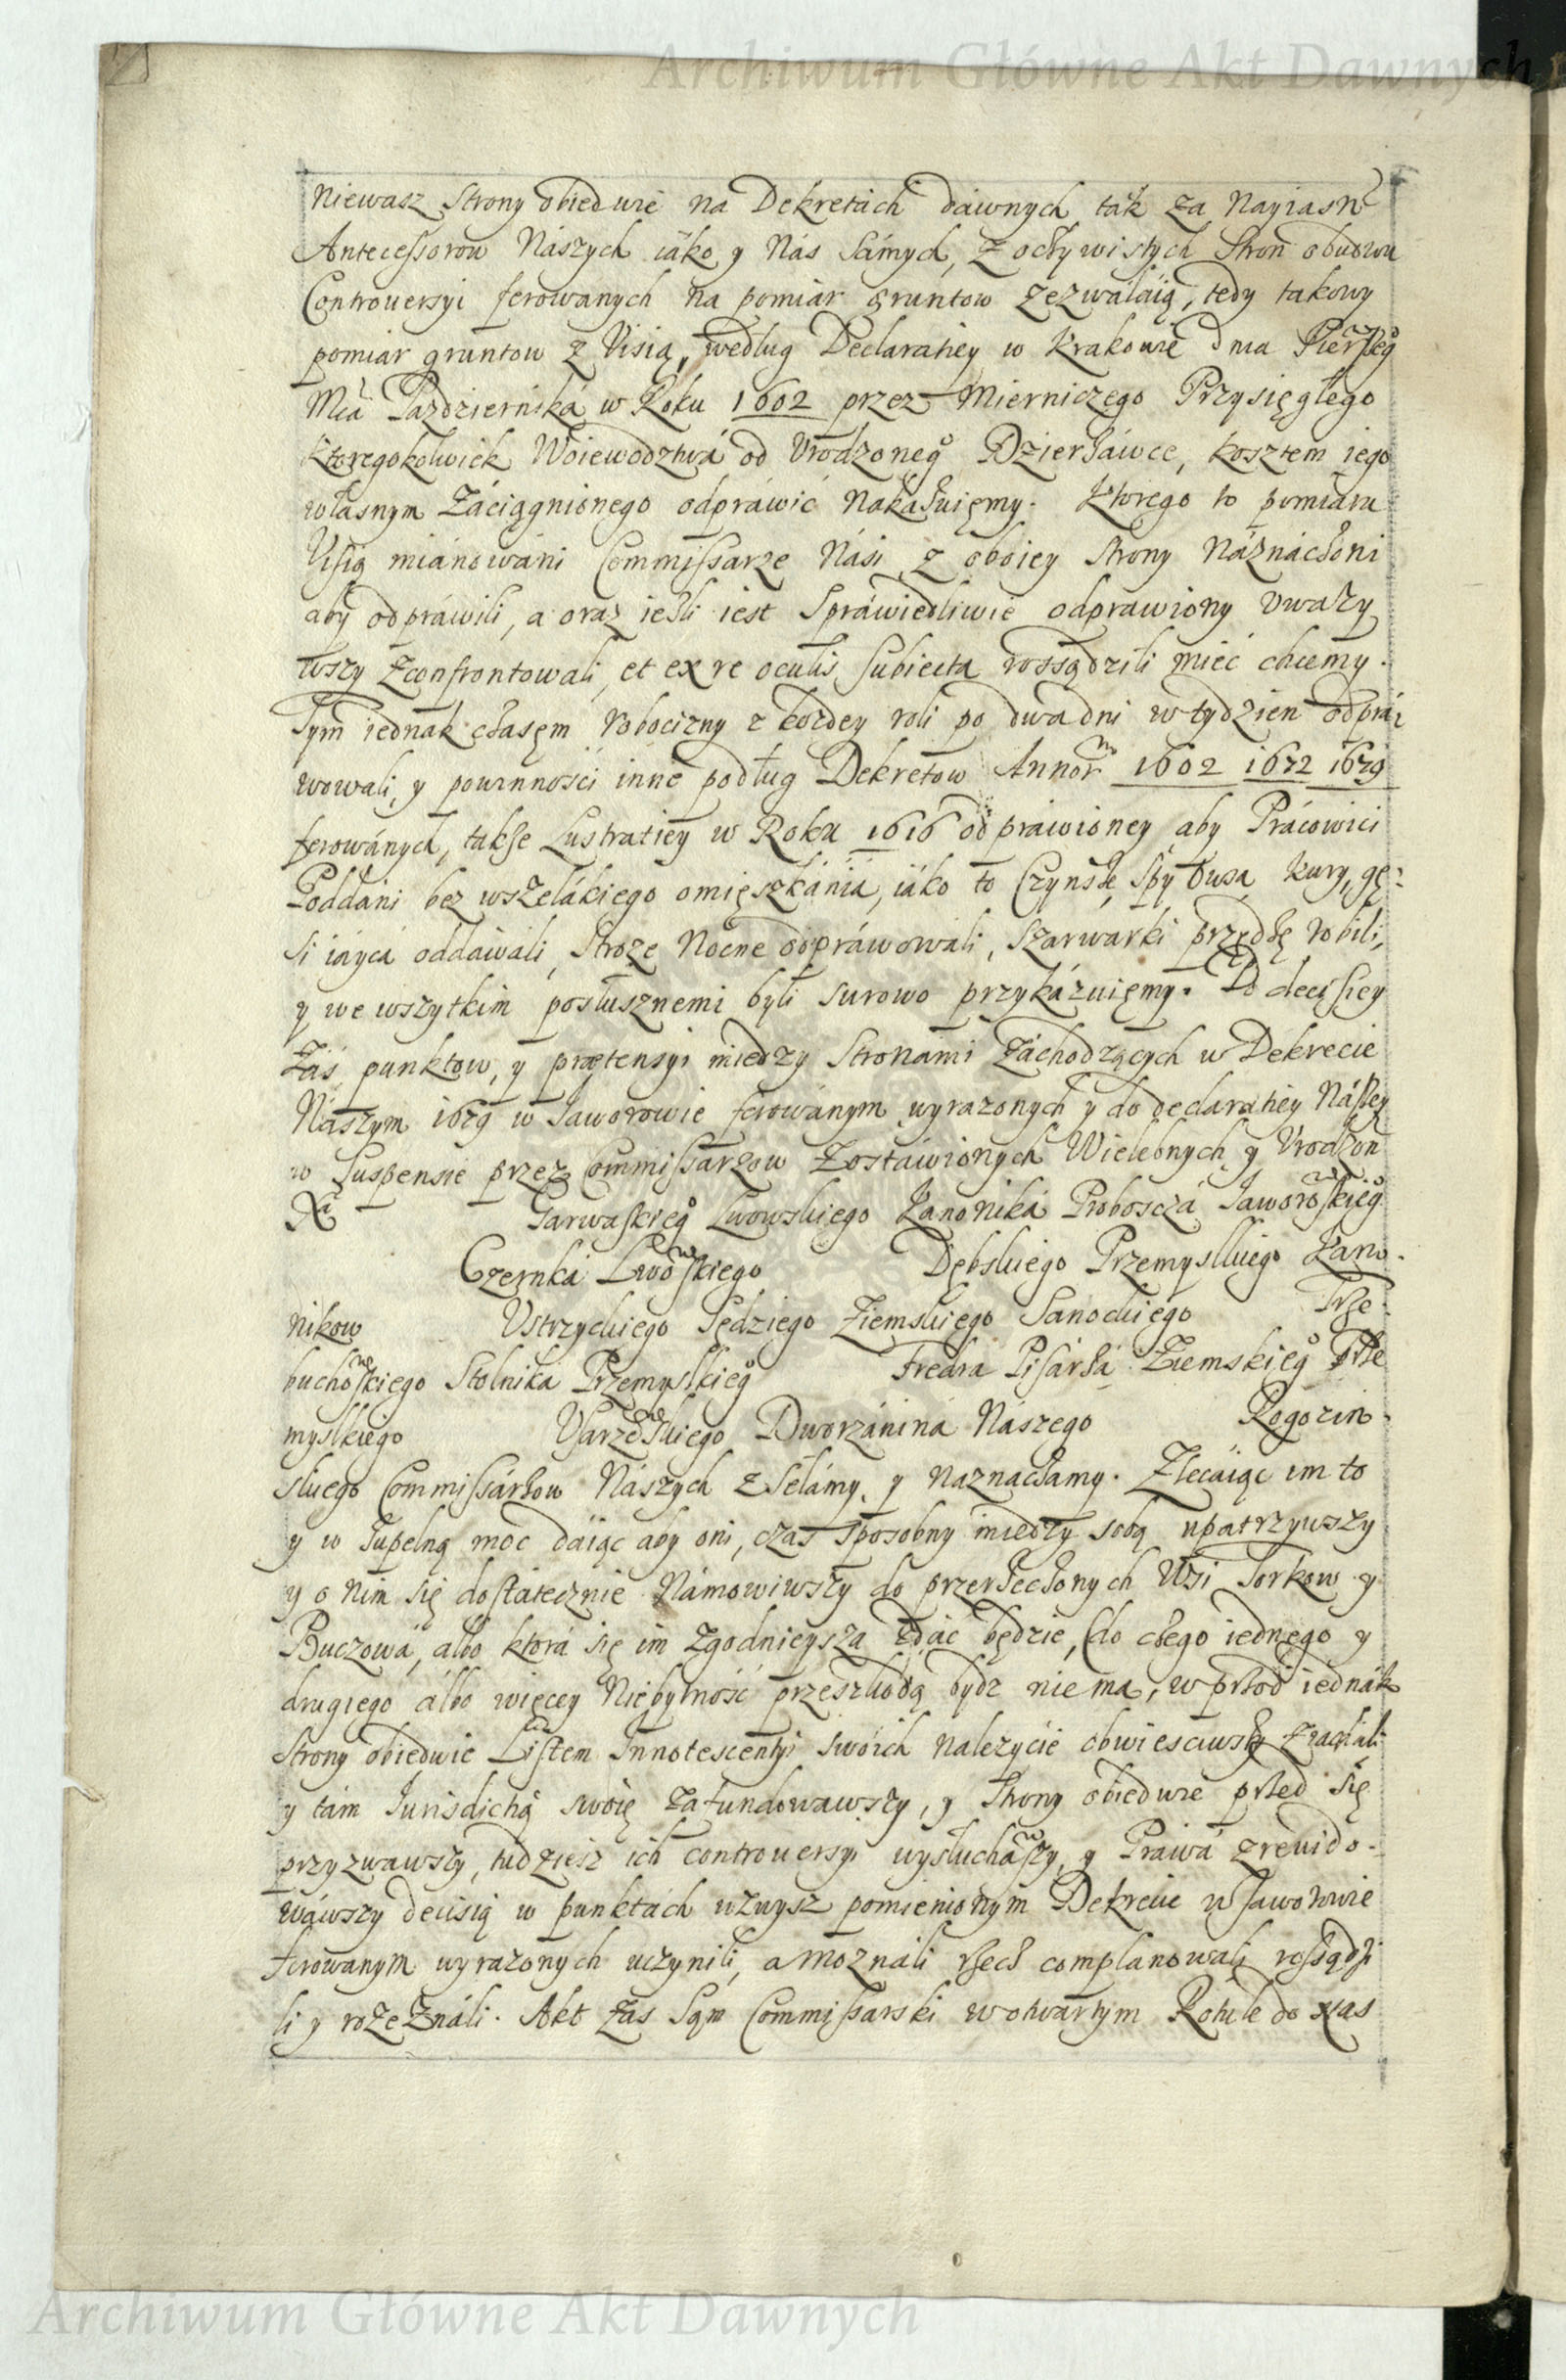 Archiwum Główne Akt Dawnych
niewasz Strony obiedwie na Dekretach dawnych tak za Nayiasn
Antecessorow Nászych iáko y Nás Sámych, z oczywistych Stron obudwu
Controuersyi ferowanych na pomiar gruntow zezwaláią, tedy takowy
pomiar gruntow z Visią, według Declaratiey w Krakowie dnia Pierszeg
Mca Pazdziernika w Roku 1602 przez Mierniczego Przysięgłego
ktoregokolwiek Woiewodztwá od Vrodzoneg Dzierżáwce, kosztem iego
własnym záciągnionego odpráwić nakázuięmy. Ktorego to pomiaru
Visią miánowáni Commissarze Nási z oboiey Strony náznáczoni
aby odpráwili, a oraz ieśli iest Spráwiedliwie odprawiony vważy
wszy zconfrontowali, et ex re oculis Subiecta rossądzili mieć chcemy.
Tym iednak czasęm robocizny z kożdey roli po dwa dni w tydzien odprá:
wowali, y powinności inne podług Dekretow Annor 1602 1672 1679
ferowánych, takze Lustratiey w Roku 1616 odprawioney aby Prácowici
Poddáni bez wszelákiego omięszkánia, iáko to Czynsze, Spy Owsa, kury, gę:
si iáycá oddáwáli, Stroze Nocne odpráwowali, Szarwarki przędzę robili,
y we wszytkim posłusznemi byli surowo przykázuięmy. Do decisiey
záś punktow, y prætensyi miedzy Stronami záchodzących w Dekrecie
Nászym 1679 w Jaworowie ferowánym wyrazonych y do declaratiey Nászey
w Suspensie przez Commissarzow zostáwionych Wielebnych y Vrodzon
Xa Garwaskieg Lwowskiego Kanoniká Proboszczá Jaworoskieg
Czernká Lwoskiego Dębskiego Przemyslkiego Kano.
nikow Vstrzyckiego Sędziego Ziemskiego Sanockiego Trze.
buchoskiego Stolnika Przemyslkieg Fredra Pisarzá Ziemskieg Prze
myslkiego Vharzeskiego Dworzániná Nászego Rogozin.
skiego Commissárzow Nászych zsełámy, y náznaczamy. Zlecáiąc im to
y w zupełną moc dáiąc aby oni, czas sposobny miedzy sobą upatrzywszy
y o nim się dostátecznie námowiwszy do przerzeczonych Wsi Torkow y
Buczowá, albo ktorá się im zgodnieysza zdáć będzie, (do czego iednego y
drugiego álbo więcey Niebytność przeszkodą bydz nie ma, w przod iednák
Strony obiedwie Listem Innotescentyi swoich nalezycie obwiesciwszy ziachali
y tám Jurisdictią swoię zafundowawszy, y Strony obiedwie przed się
przyzwawszy, tudziesz ich controuersyi wysłuchaszy, y Práwá zrewido.
wáwszy decisią w punktách wzwysz pomienionym Dekrecie w Jaworowie
ferowanym wyrazonych uczynili, a moznali rzecz complanowali rossądzi
li y rozeználi. Akt zas Sąm Commissarski w otwartym Rotule do nas
Archiwum Główne Akt Dawnych